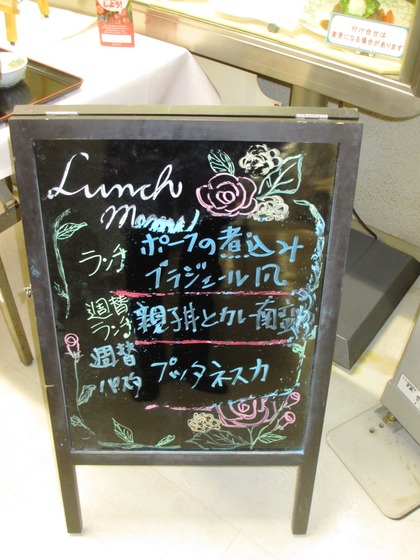 Lunch
Menu
ランチ
ポークの煮込み
ブラジェール風
週替
ランチ
親子丼とカレー南蛮
週替
パスタ
プッタネスカ
付け合せは
変更になる場合があります